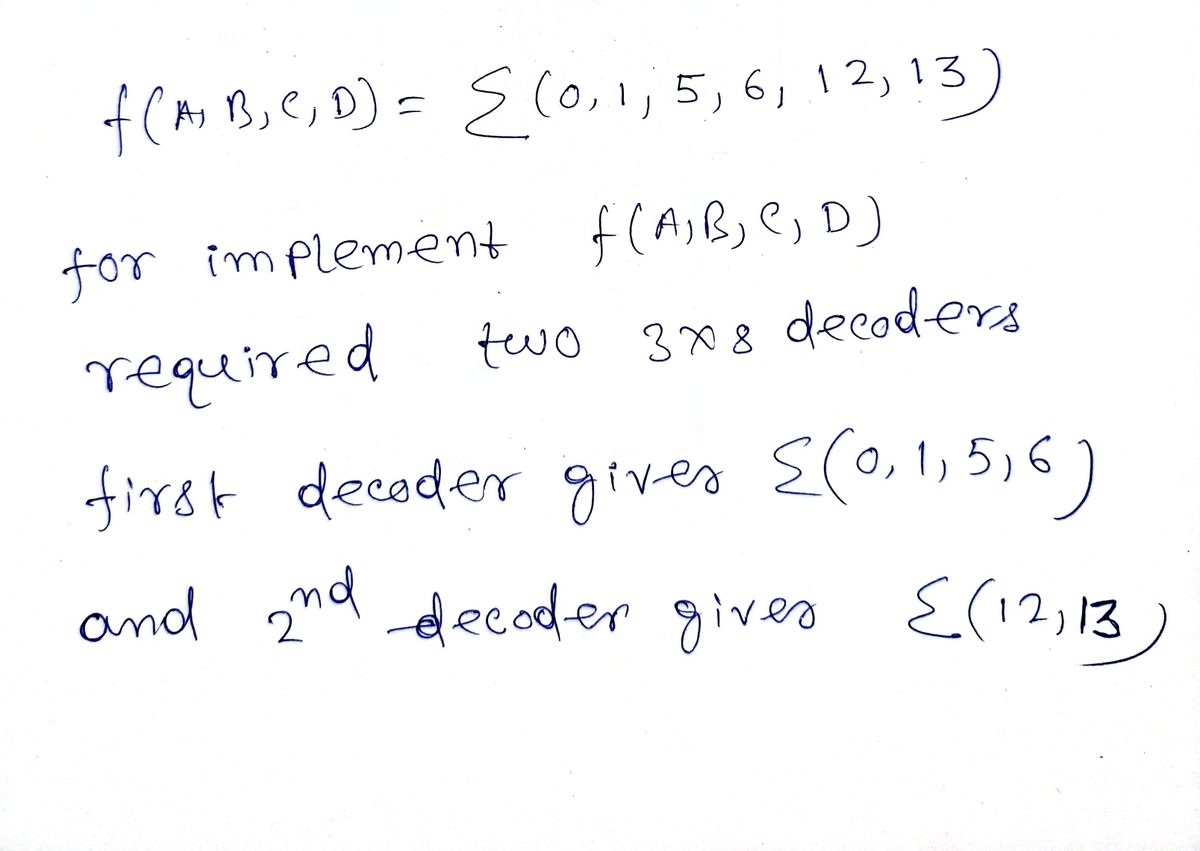 f(A, B, C, D) = Σ(0, 1, 5, 6, 12, 13)
for implement f(A, B, C, D)
required two 3×8 decoders
first decoder gives Σ(0, 1, 5, 6)
and 2nd decoder gives Σ(12, 13)